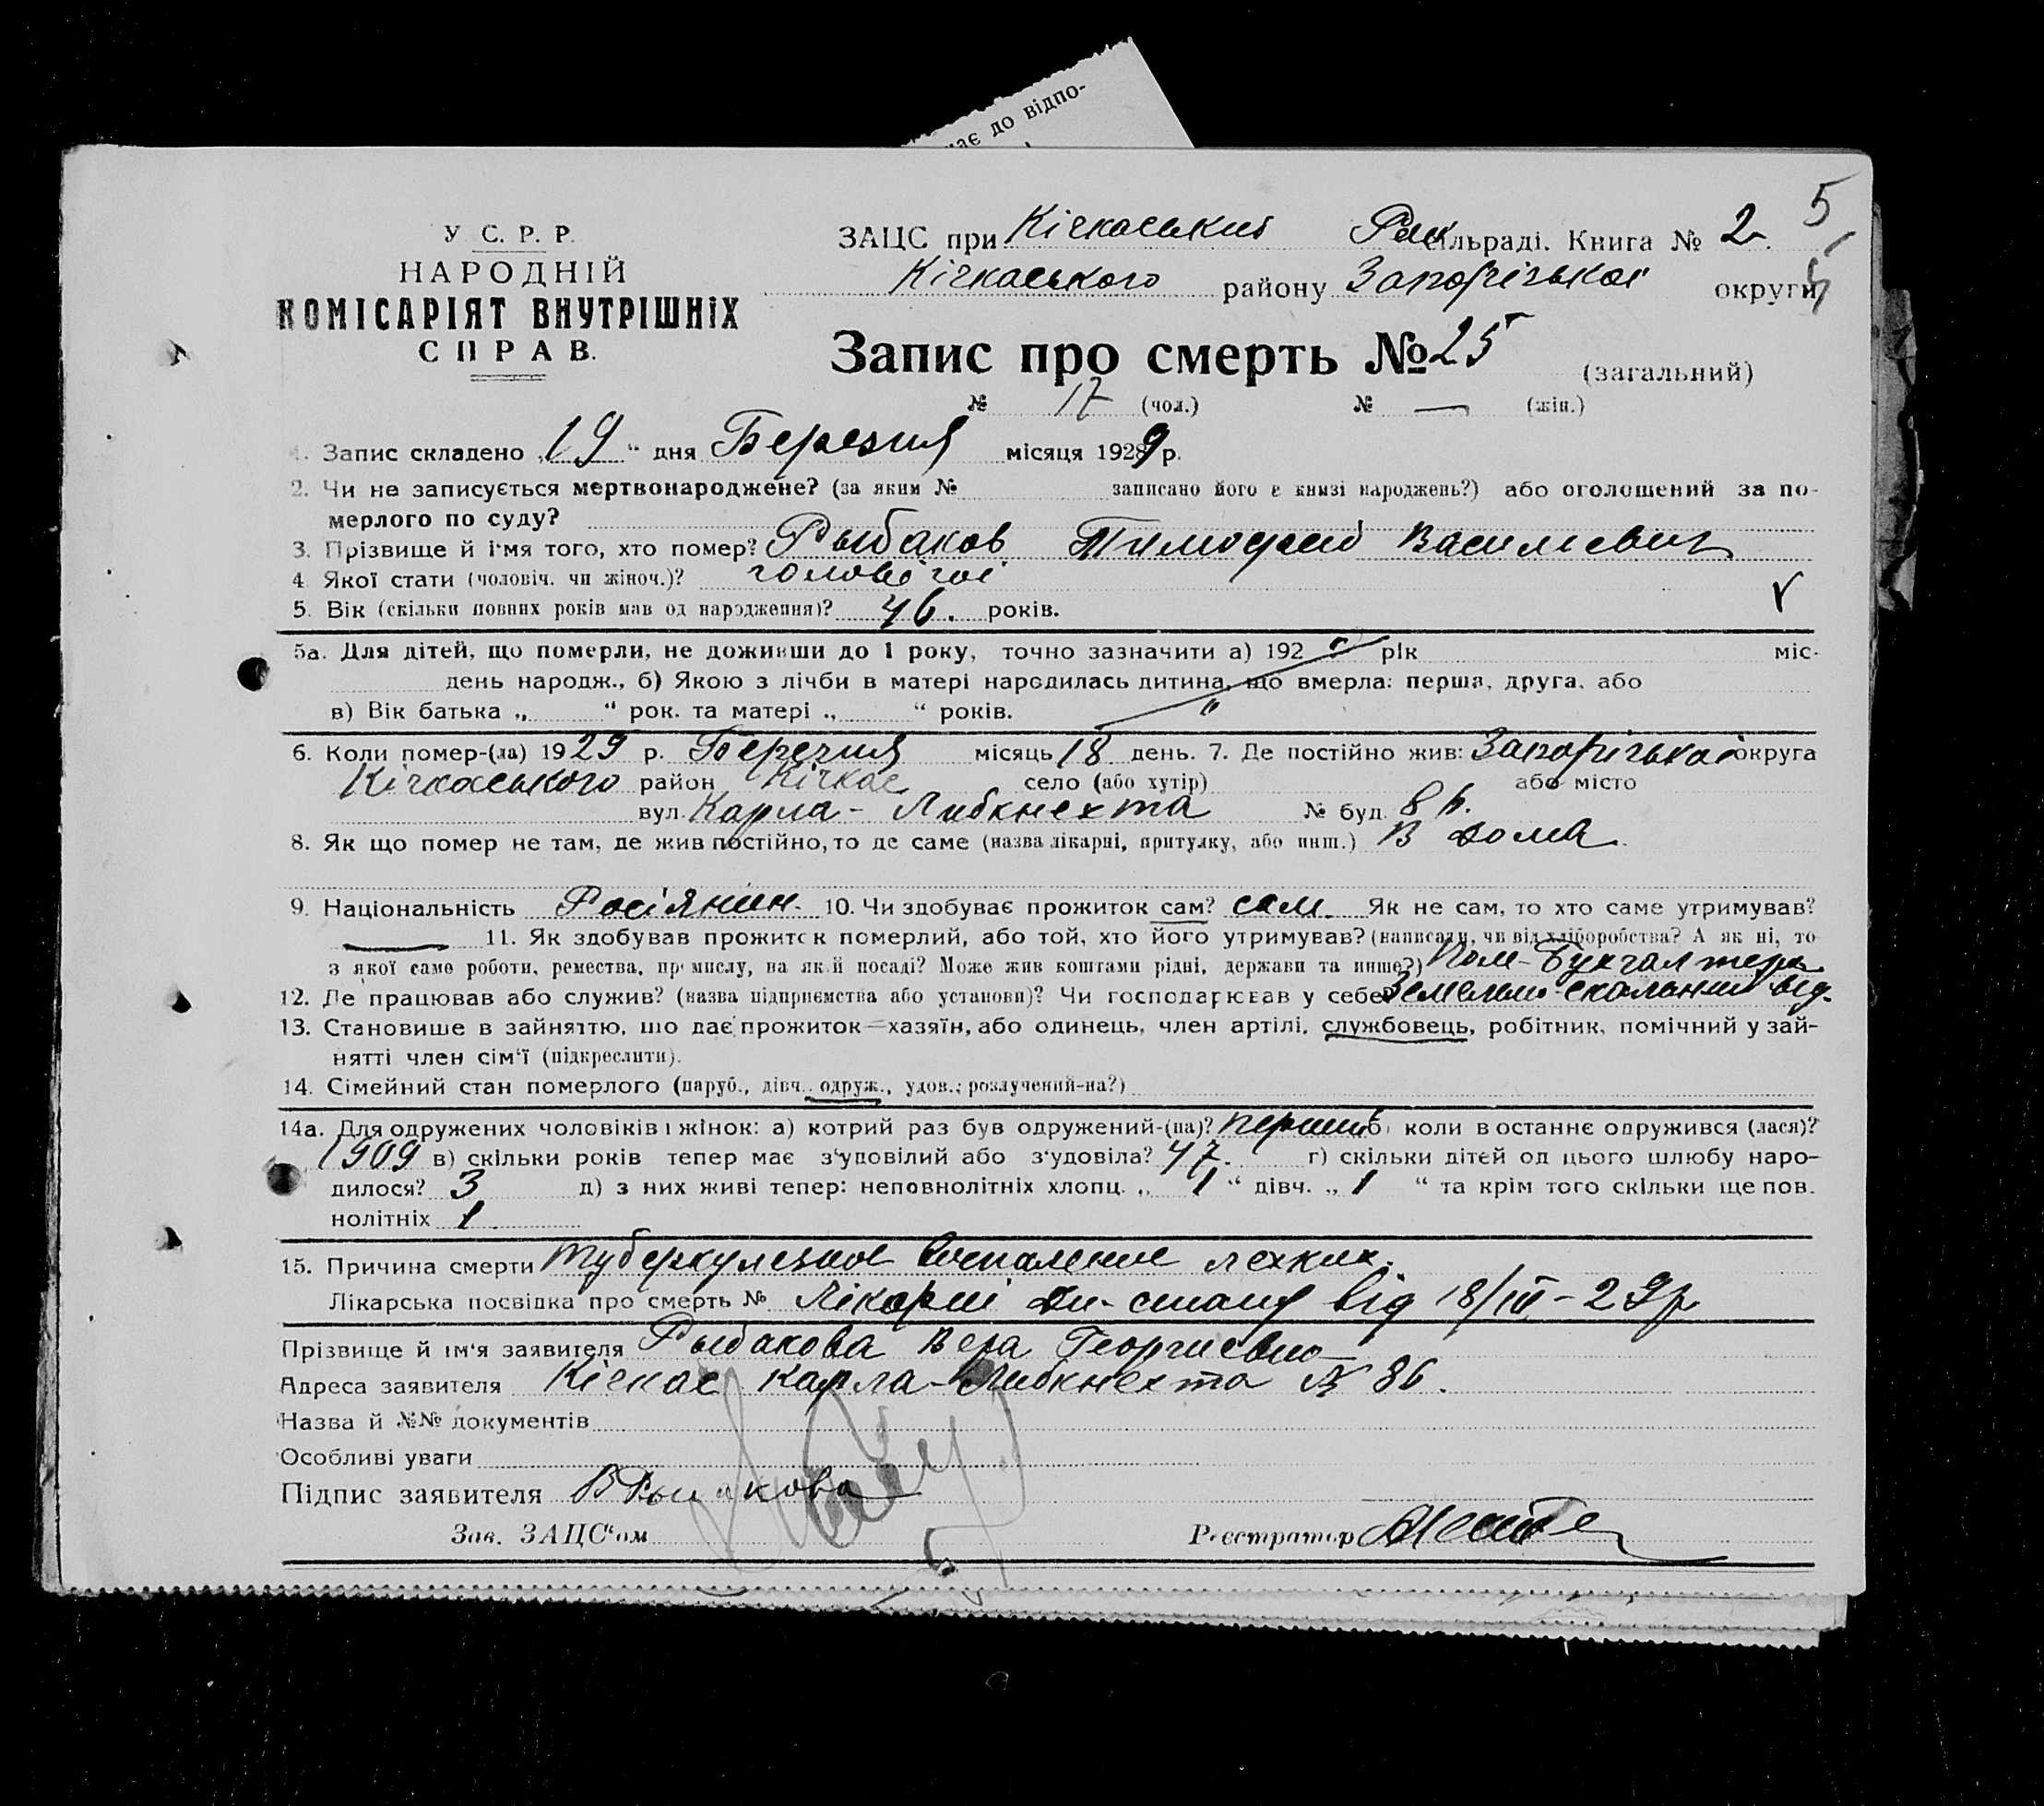 ає до відпо-
У С. Р. Р.
НАРОДНІЙ
КОМІСАРІЯТ ВНУТРІШНІХ
СПРАВ.
ЗАЦС при Кічкаський Рай сільраді. Книга № 2. 5
Кічкаського району Запорізької округи
Запис про смерть № 25 (загальний)
№ 17 (чол.) № — (жін.)
1. Запис складено „19“ дня Березня місяця 1929 р.
2. Чи не записується мертвонароджене? (за яким № записано його в книзі народжень?) або оголошений за по-
мерлого по суду?
3. Прізвище й ім'я того, хто помер? Рыбаков Тимофей Василиевич
4. Якої стати (чоловіч. чи жіноч.)? чоловічої
5. Вік (скільки повних років мав од народження)? 46. років.
5а. Для дітей, що померли, не доживши до 1 року, точно зазначити а) 192 рік міс-
день народж., б) Якою з лічби в матері народилась дитина, що вмерла: перша, друга, або
в) Вік батька „ “ рок. та матері „ “ років.
6. Коли помер-(ла) 1929 р. Березня місяць 18 день. 7. Де постійно жив: Запорізької округа
Кічкаського район Кічкас село (або хутір) або місто
вул. Карла - Либкнехта № буд. 86.
8. Як що помер не там, де жив постійно, то де саме (назва лікарні, притулку, або инш.) В дома
9. Національність Росіянин. 10. Чи здобуває прожиток сам? сам. Як не сам, то хто саме утримував?
— 11. Як здобував прожиток померлий, або той, хто його утримував? (написати, чи від хліборобства? А як ні, то
з якої саме роботи, ремества, промислу, на якій посаді? Може жив коштами рідні, держави та инше?) Пом-Бухгалтера
12. Де працював або служив? (назва підприємства або установи)? Чи господарював у себе? Земельно-скальний від.
13. Становище в зайняттю, що дає прожиток—хазяїн, або одинець, член артілі, службовець, робітник, помічний у зай-
нятті член сім'ї (підкреслити).
14. Сімейний стан померлого (паруб., дівч., одруж., удов.; розлучений-на?)
14а. Для одружених чоловіків і жінок: а) котрий раз був одружений-(на)? перший б) коли востаннє одружився (лася)?
1909 в) скільки років тепер має з'удовілий або з'удовіла? 47. г) скільки дітей од цього шлюбу наро-
дилося? 3 д) з них живі тепер: неповнолітніх хлопц. „ 1 “ дівч. „ 1 “ та крім того скільки ще пов.
нолітніх 1.
15. Причина смерти туберкулезное воспаление легких.
Лікарська посвідка про смерть № Лікарні від 18/III - 29р
Прізвище й ім'я заявителя Рыбакова Вера Георгиевна
Адреса заявителя Кічкас Карла-Либкнехта № 86.
Назва й №№ документів
Особливі уваги
Підпис заявителя В Рыбакова
Зав. ЗАЦС'ом Реєстратор